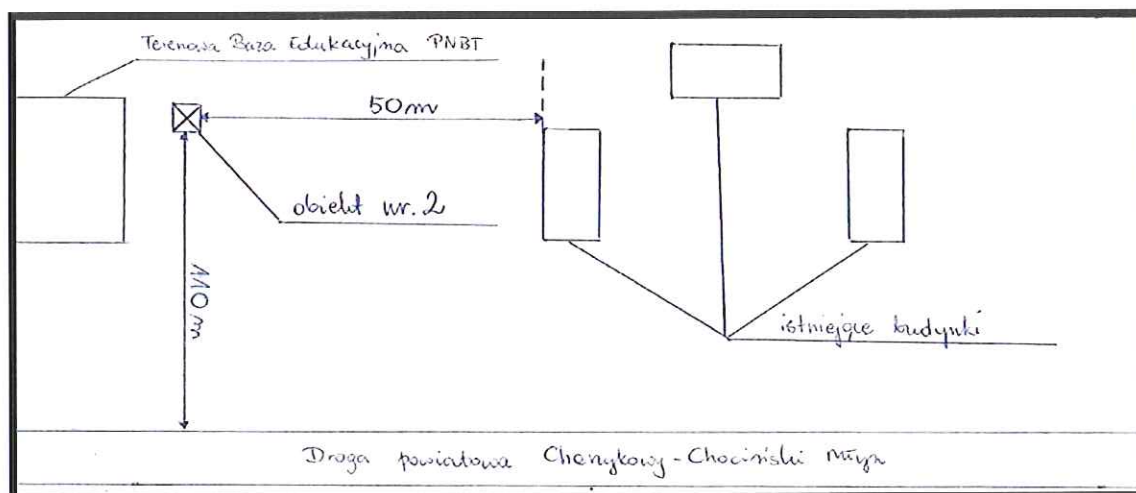 Terenowa Baza Edukacyjna PNBT
50m
obiekt nr. 2
110m
istniejące budynki
Droga powiatowa Charzykowy - Chociński Młyn